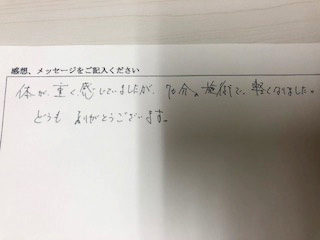 感想、メッセージをご記入ください
体が、重く感じていましたが、70分の施術で、軽くなりました。
どうも ありがとうございます。